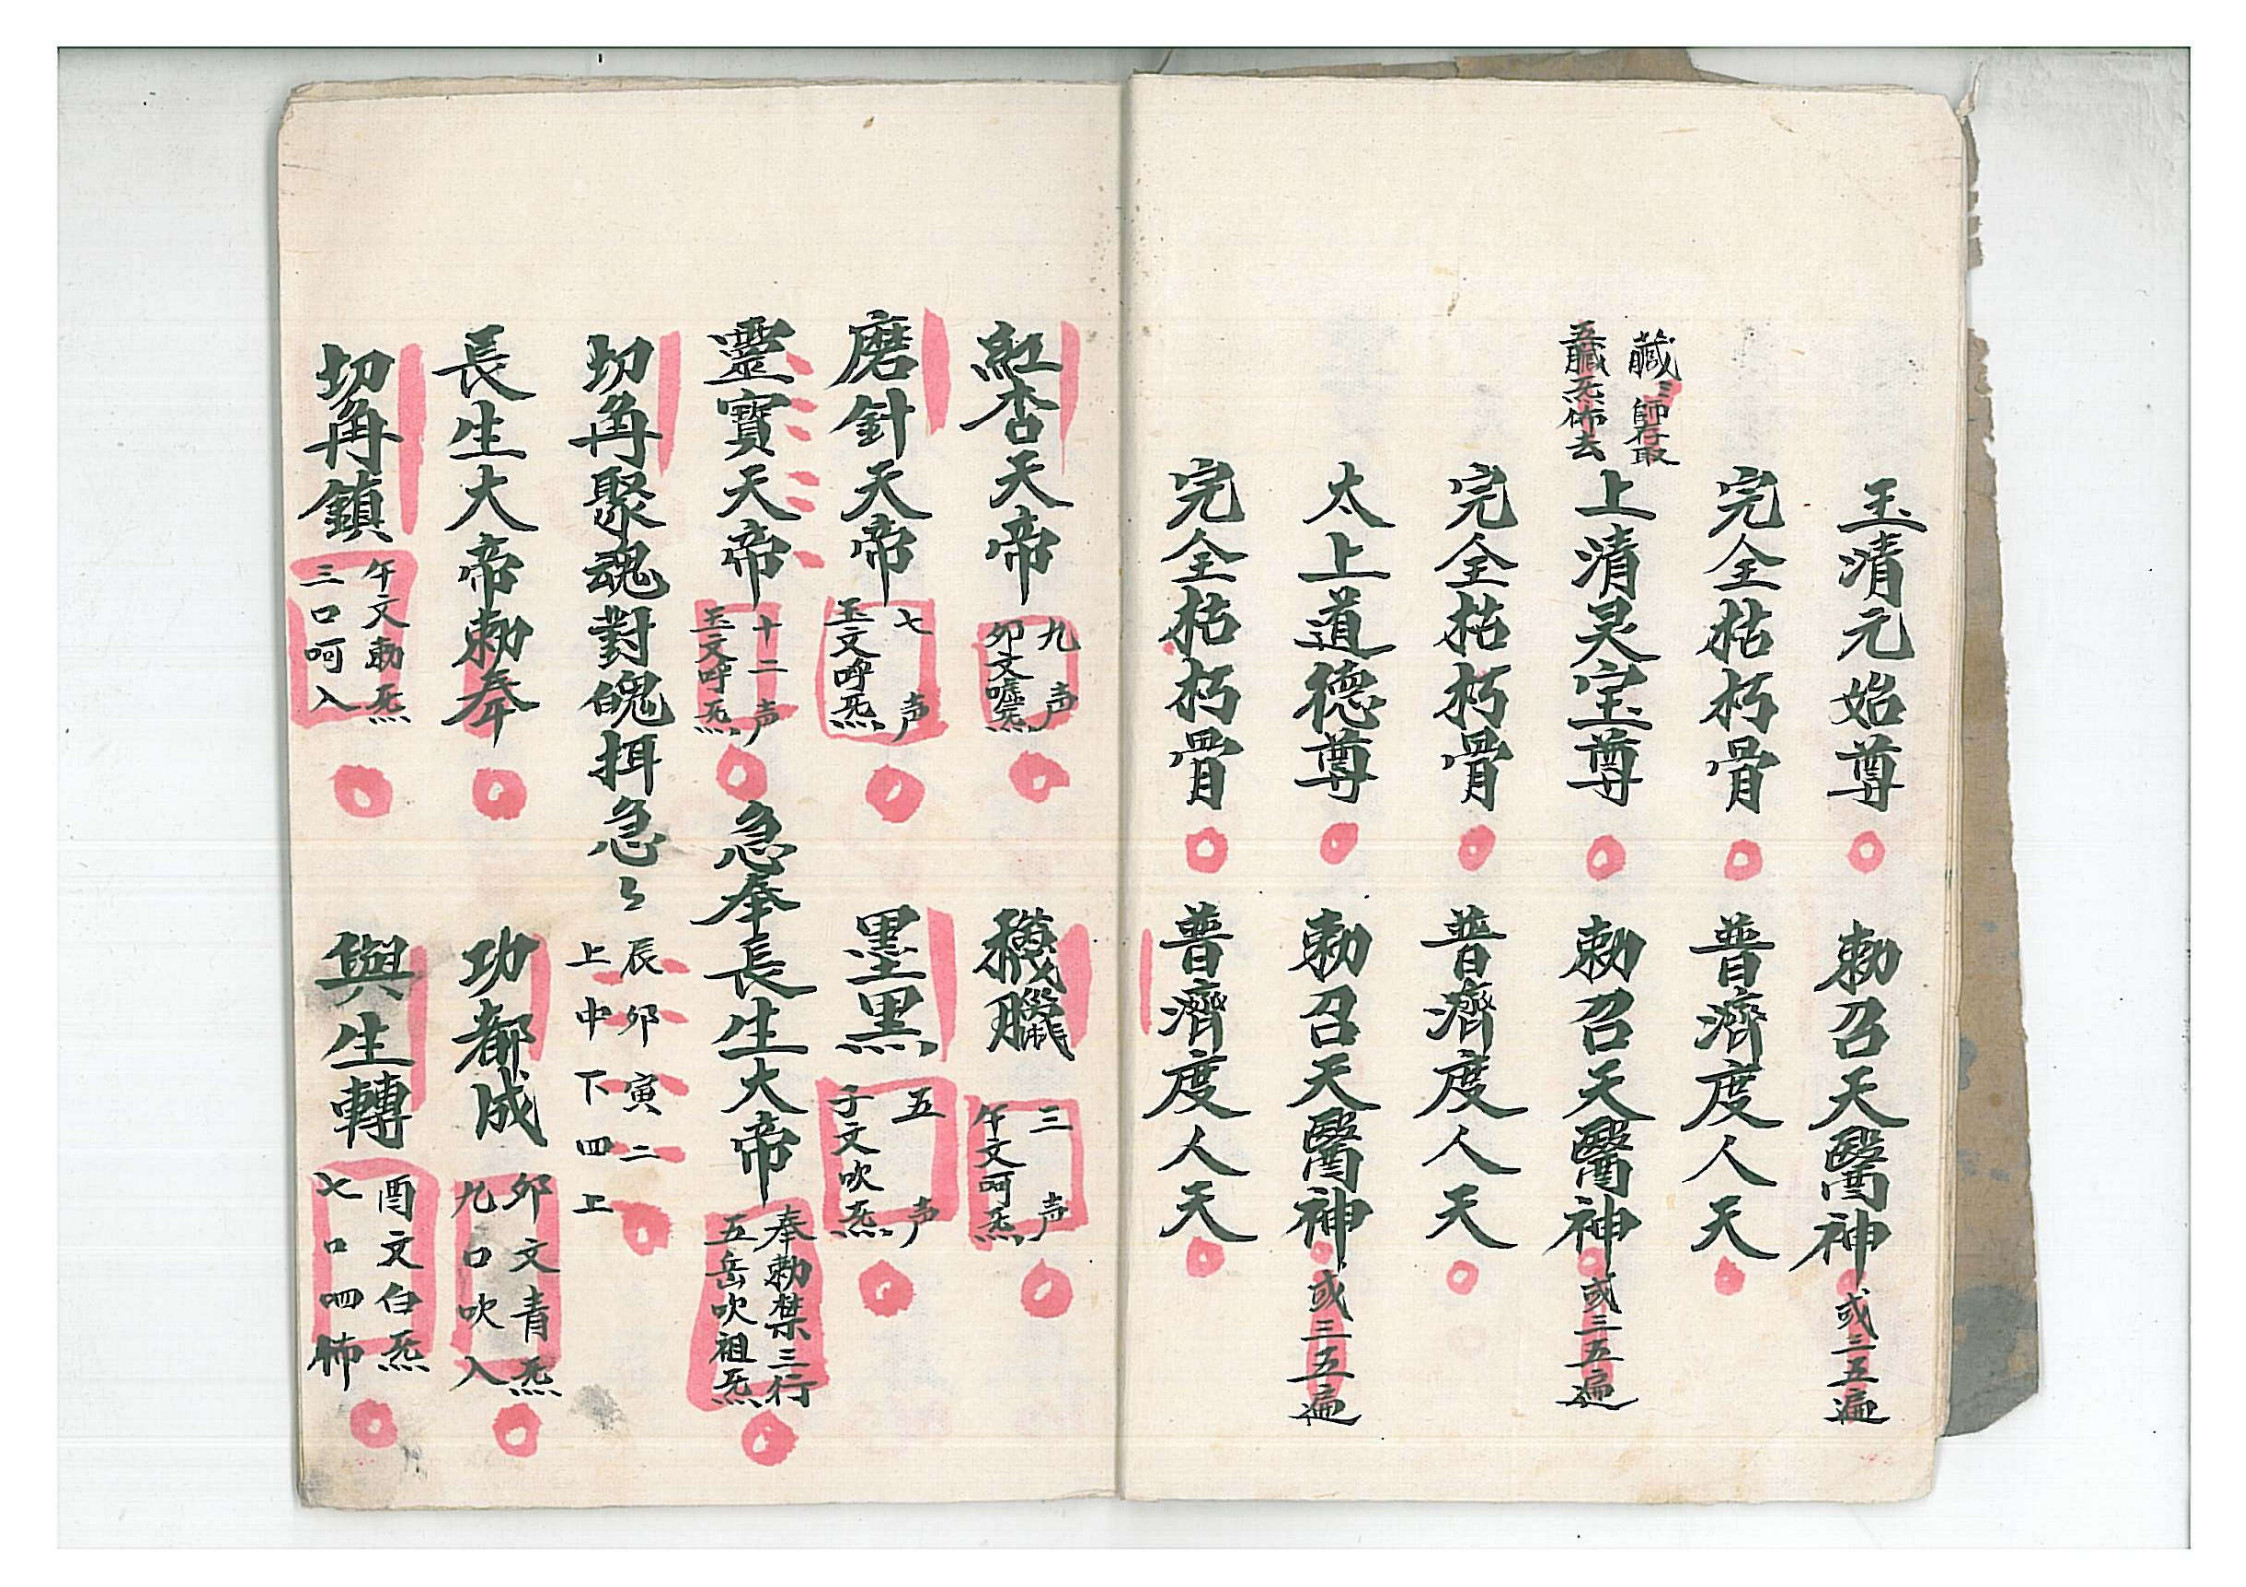 玉清元始尊　勅召天醫神　或三五遍
完全枯朽骨　普濟度人天
師存最
五臟炁佈去
上清灵宝尊　勅召天醫神　或三五遍
完全枯朽骨　普濟度人天
太上道德尊　勅召天醫神　或三五遍
完全枯朽骨　普濟度人天
紅杏天帝　九声　卯文噓炁　三声　午文呵炁
磨針天帝　七声　玉文呼炁　墨黑　五声　子文吹炁
靈寶天帝　十二声　玉文呼炁　急奉長生大帝　奉勅禁三行　五岳吹祖炁
切角聚魂對魄揖急々　辰卯寅二　上中下四上
長生大帝勅奉　功都成　卯文青炁　九口吹入
切角鎮　午文勅炁　三口呵入　與生轉　酉文白炁　七口呬佈